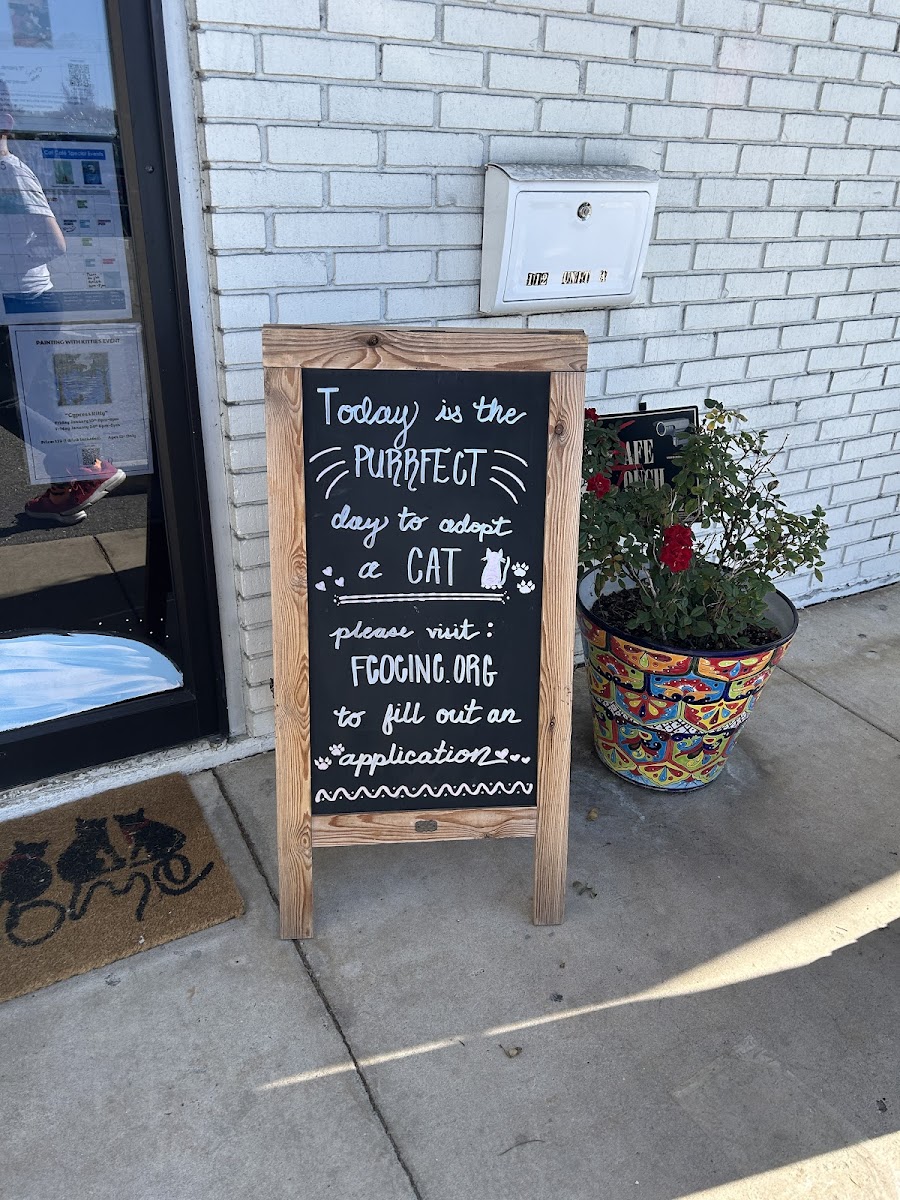 Today is the
PURRFECT
day to adopt
a CAT
please visit:
FCOCINC.ORG
to fill out an
application
112 UNIT A
Cat Café Special Events
PAINTING WITH KITTIES EVENT
"Cypress Kitty"
AFE